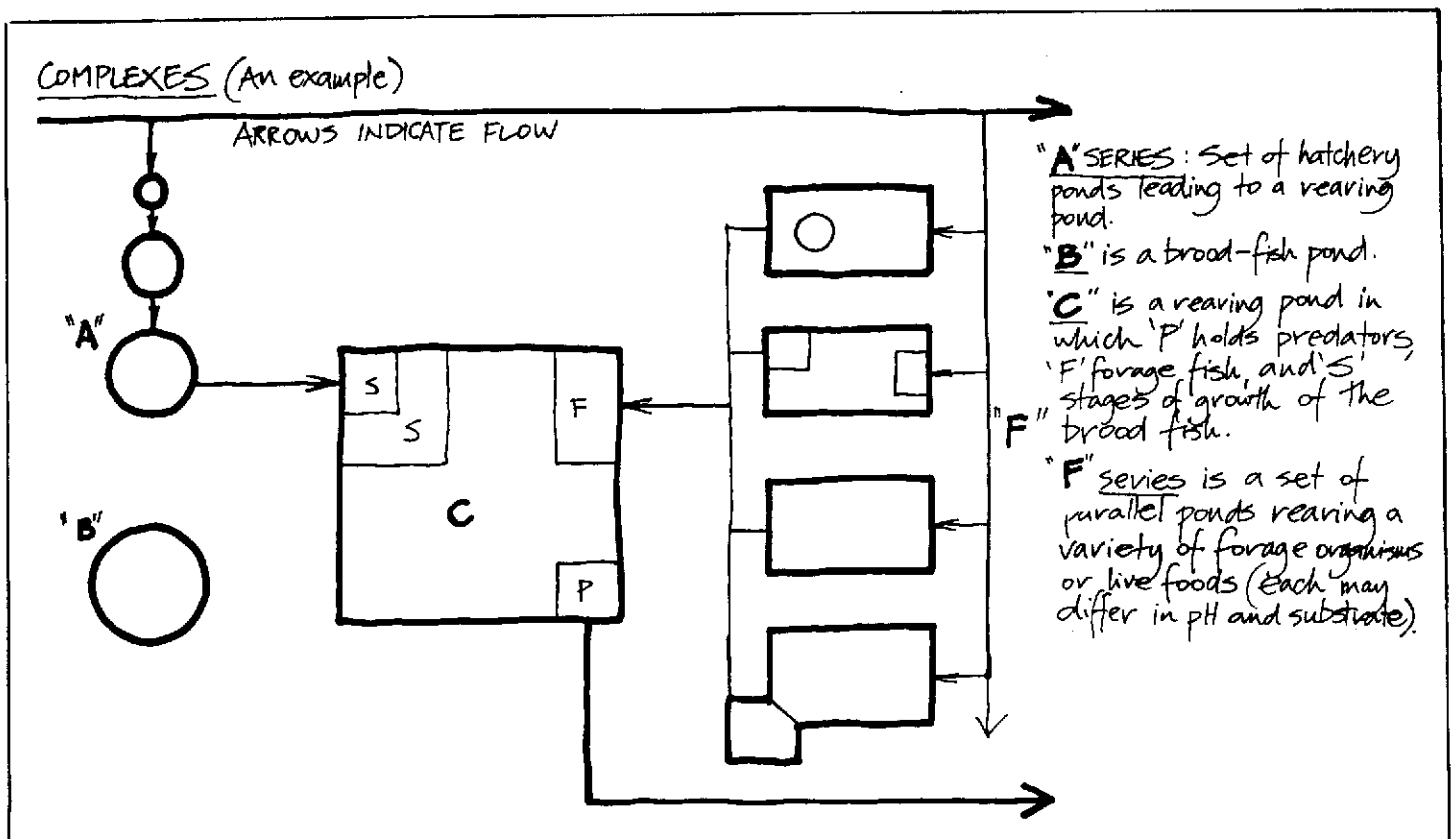 COMPLEXES (An example)
ARROWS INDICATE FLOW
"A"
"B"
S
S
F
C
P
"F"
"A" SERIES : Set of hatchery
ponds leading to a rearing
pond.
"B" is a brood-fish pond.
"C" is a rearing pond in
which 'P' holds predators,
'F' forage fish, and 'S'
stages of growth of the
brood fish.
"F" series is a set of
parallel ponds rearing a
variety of forage organisms
or live foods (each may
differ in pH and substrate).